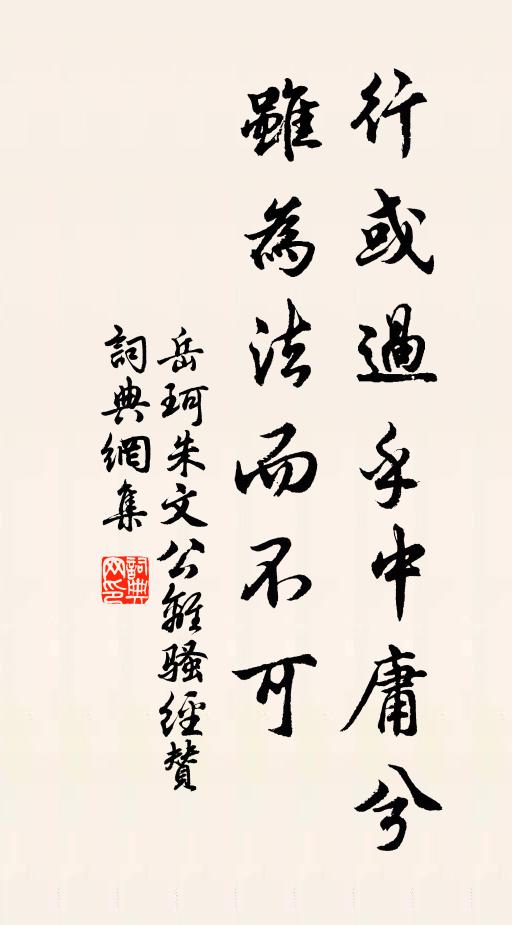 行或過乎中庸兮
雖為法而不可
岳珂朱文公離騷經贊
詞典網集
詞典
网印